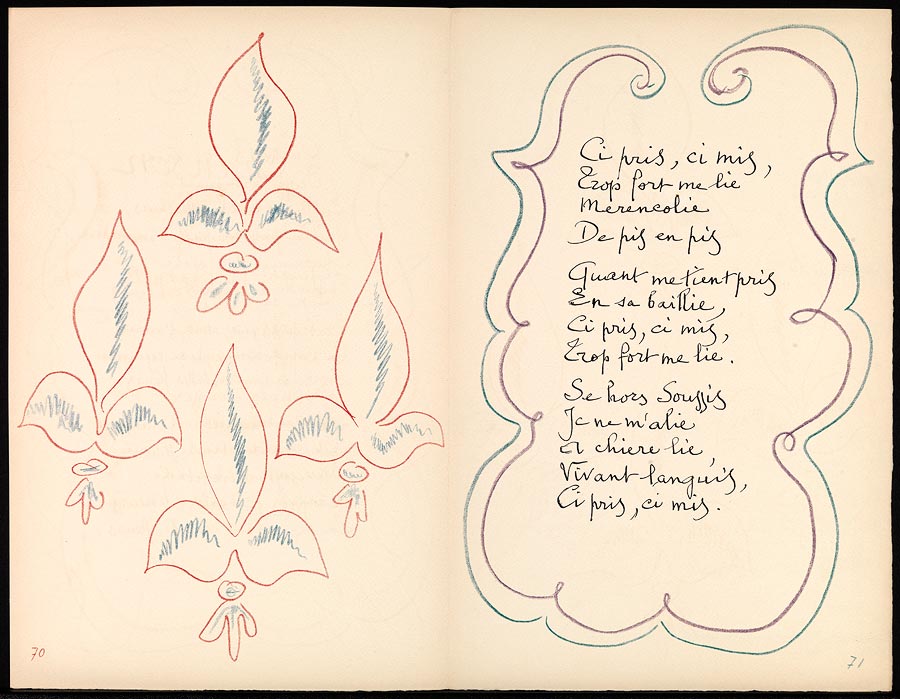 70
Ci pris, ci mis,
Trop fort me lie
Merencolie
De pis en pis
Quant me tient pris
En sa baillie,
Ci pris, ci mis,
Trop fort me lie.
Se hors Soussis
Je ne m'alie
A chiere lie,
Vivant languis,
Ci pris, ci mis.
71